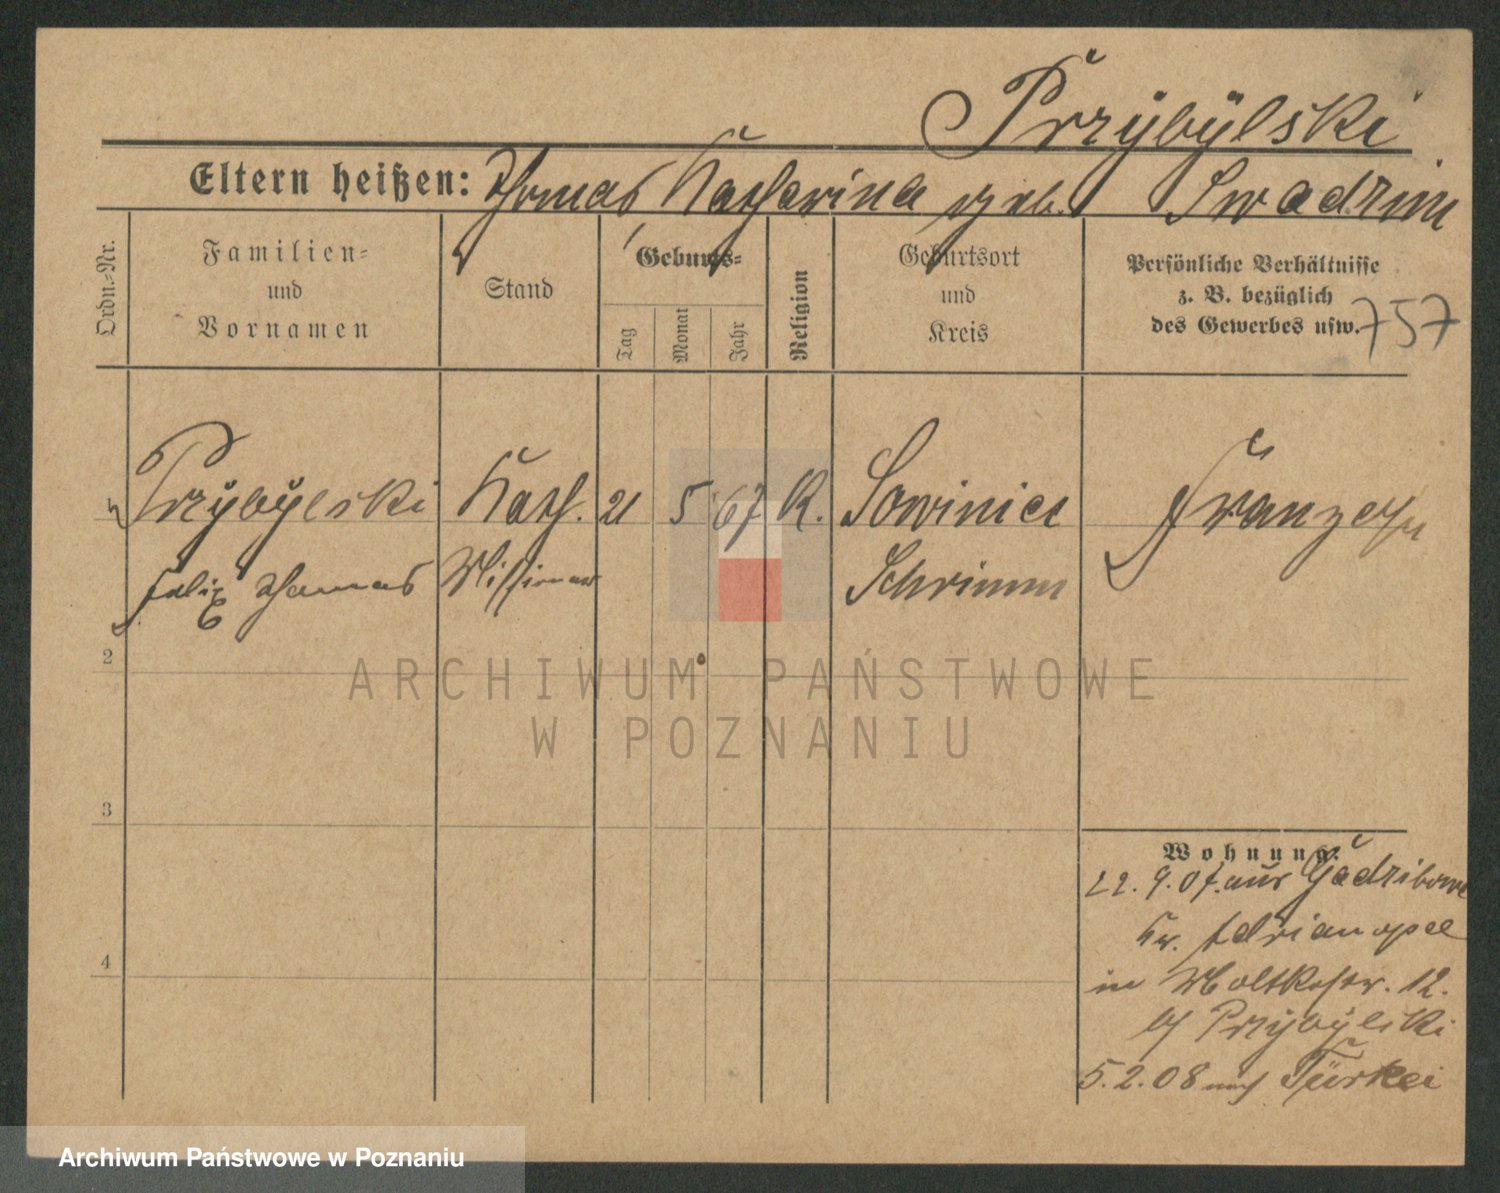 Przybylski
Eltern heißen: Thomas Katharina geb. Swadzim
Ordn.-Nr.
Familien-
und
Vornamen
Stand
Geburts-
Tag
Monat
Jahr
Religion
Geburtsort
und
Kreis
Persönliche Verhältnisse
z. B. bezüglich
des Gewerbes usw.
757
Przybylski Kath. 21 5 67 K. Sowiniec
Felix Thomas Missionar Schrimm
2
ARCHIWUM PAŃSTWOWE
W POZNANIU
3
4
Wohnung.
22. 9. 07. aus
Kr. Adrianopel
in Moltkestr. 12.
b/ Przybylski
5. 2. 08 nach Türkei
Archiwum Państwowe w Poznaniu